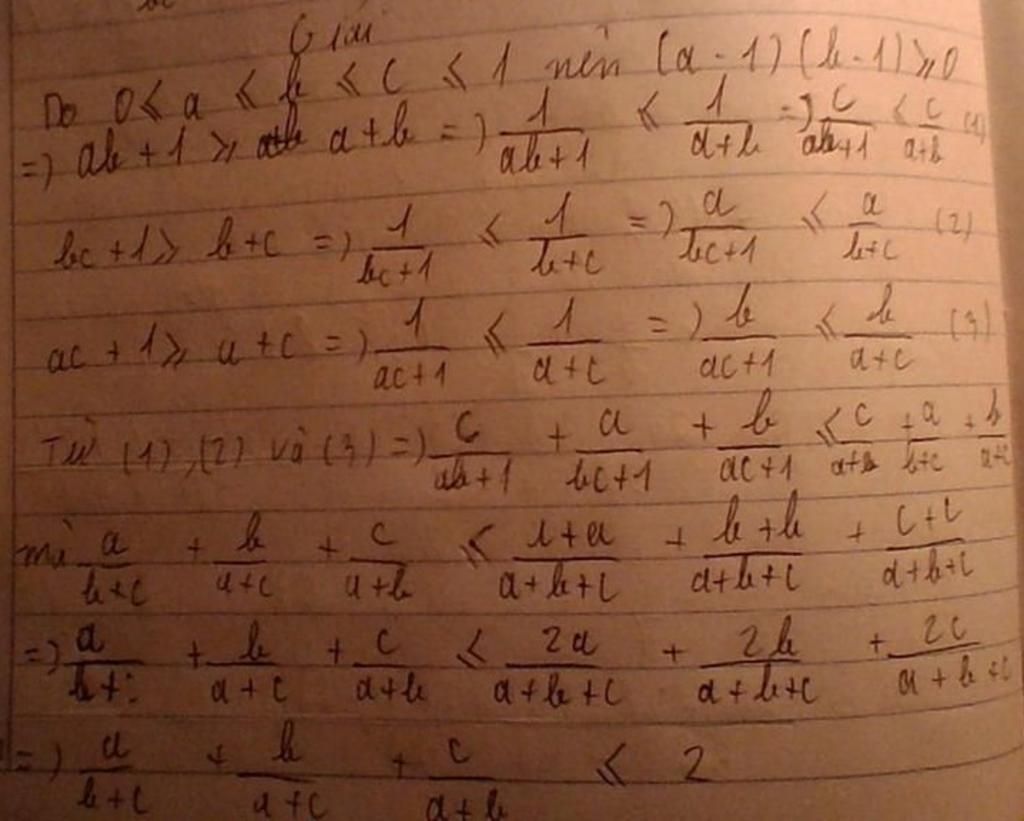 Giải
Do 0 ≤ a ≤ b ≤ c ≤ 1 nên (a - 1)(b - 1) ≥ 0
=> ab + 1 ≥ a + b => 1/(ab+1) ≤ 1/(a+b) => c/(ab+1) ≤ c/(a+b) (1)
bc + 1 ≥ b + c => 1/(bc+1) ≤ 1/(b+c) => a/(bc+1) ≤ a/(b+c) (2)
ac + 1 ≥ a + c => 1/(ac+1) ≤ 1/(a+c) => b/(ac+1) ≤ b/(a+c) (3)
Từ (1), (2) và (3) => c/(ab+1) + a/(bc+1) + b/(ac+1) ≤ c/(a+b) + a/(b+c) + b/(a+c)
mà a/(b+c) + b/(a+c) + c/(a+b) ≤ (a+a)/(a+b+c) + (b+b)/(a+b+c) + (c+c)/(a+b+c)
=> a/(b+c) + b/(a+c) + c/(a+b) ≤ 2a/(a+b+c) + 2b/(a+b+c) + 2c/(a+b+c)
=> a/(b+c) + b/(a+c) + c/(a+b) ≤ 2